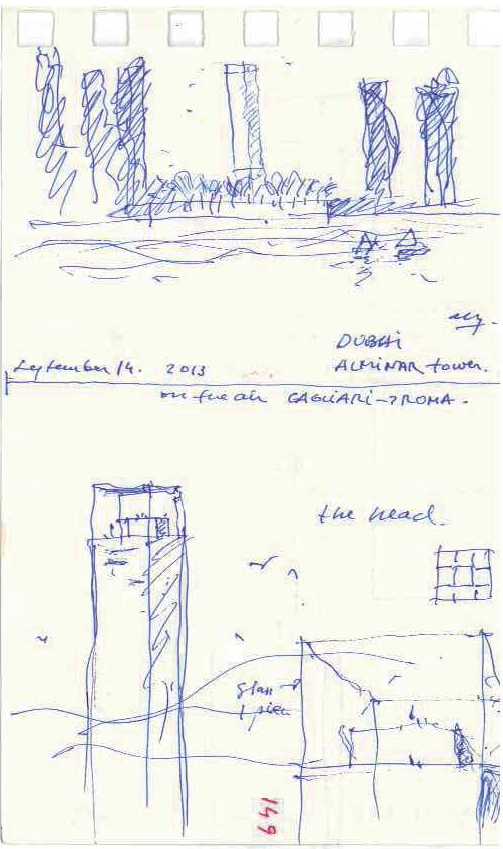 DUBAI
September 14. 2013
ALMINAR tower.
on the air CAGLIARI → ROMA.
the head.
glass →
1 piece
149